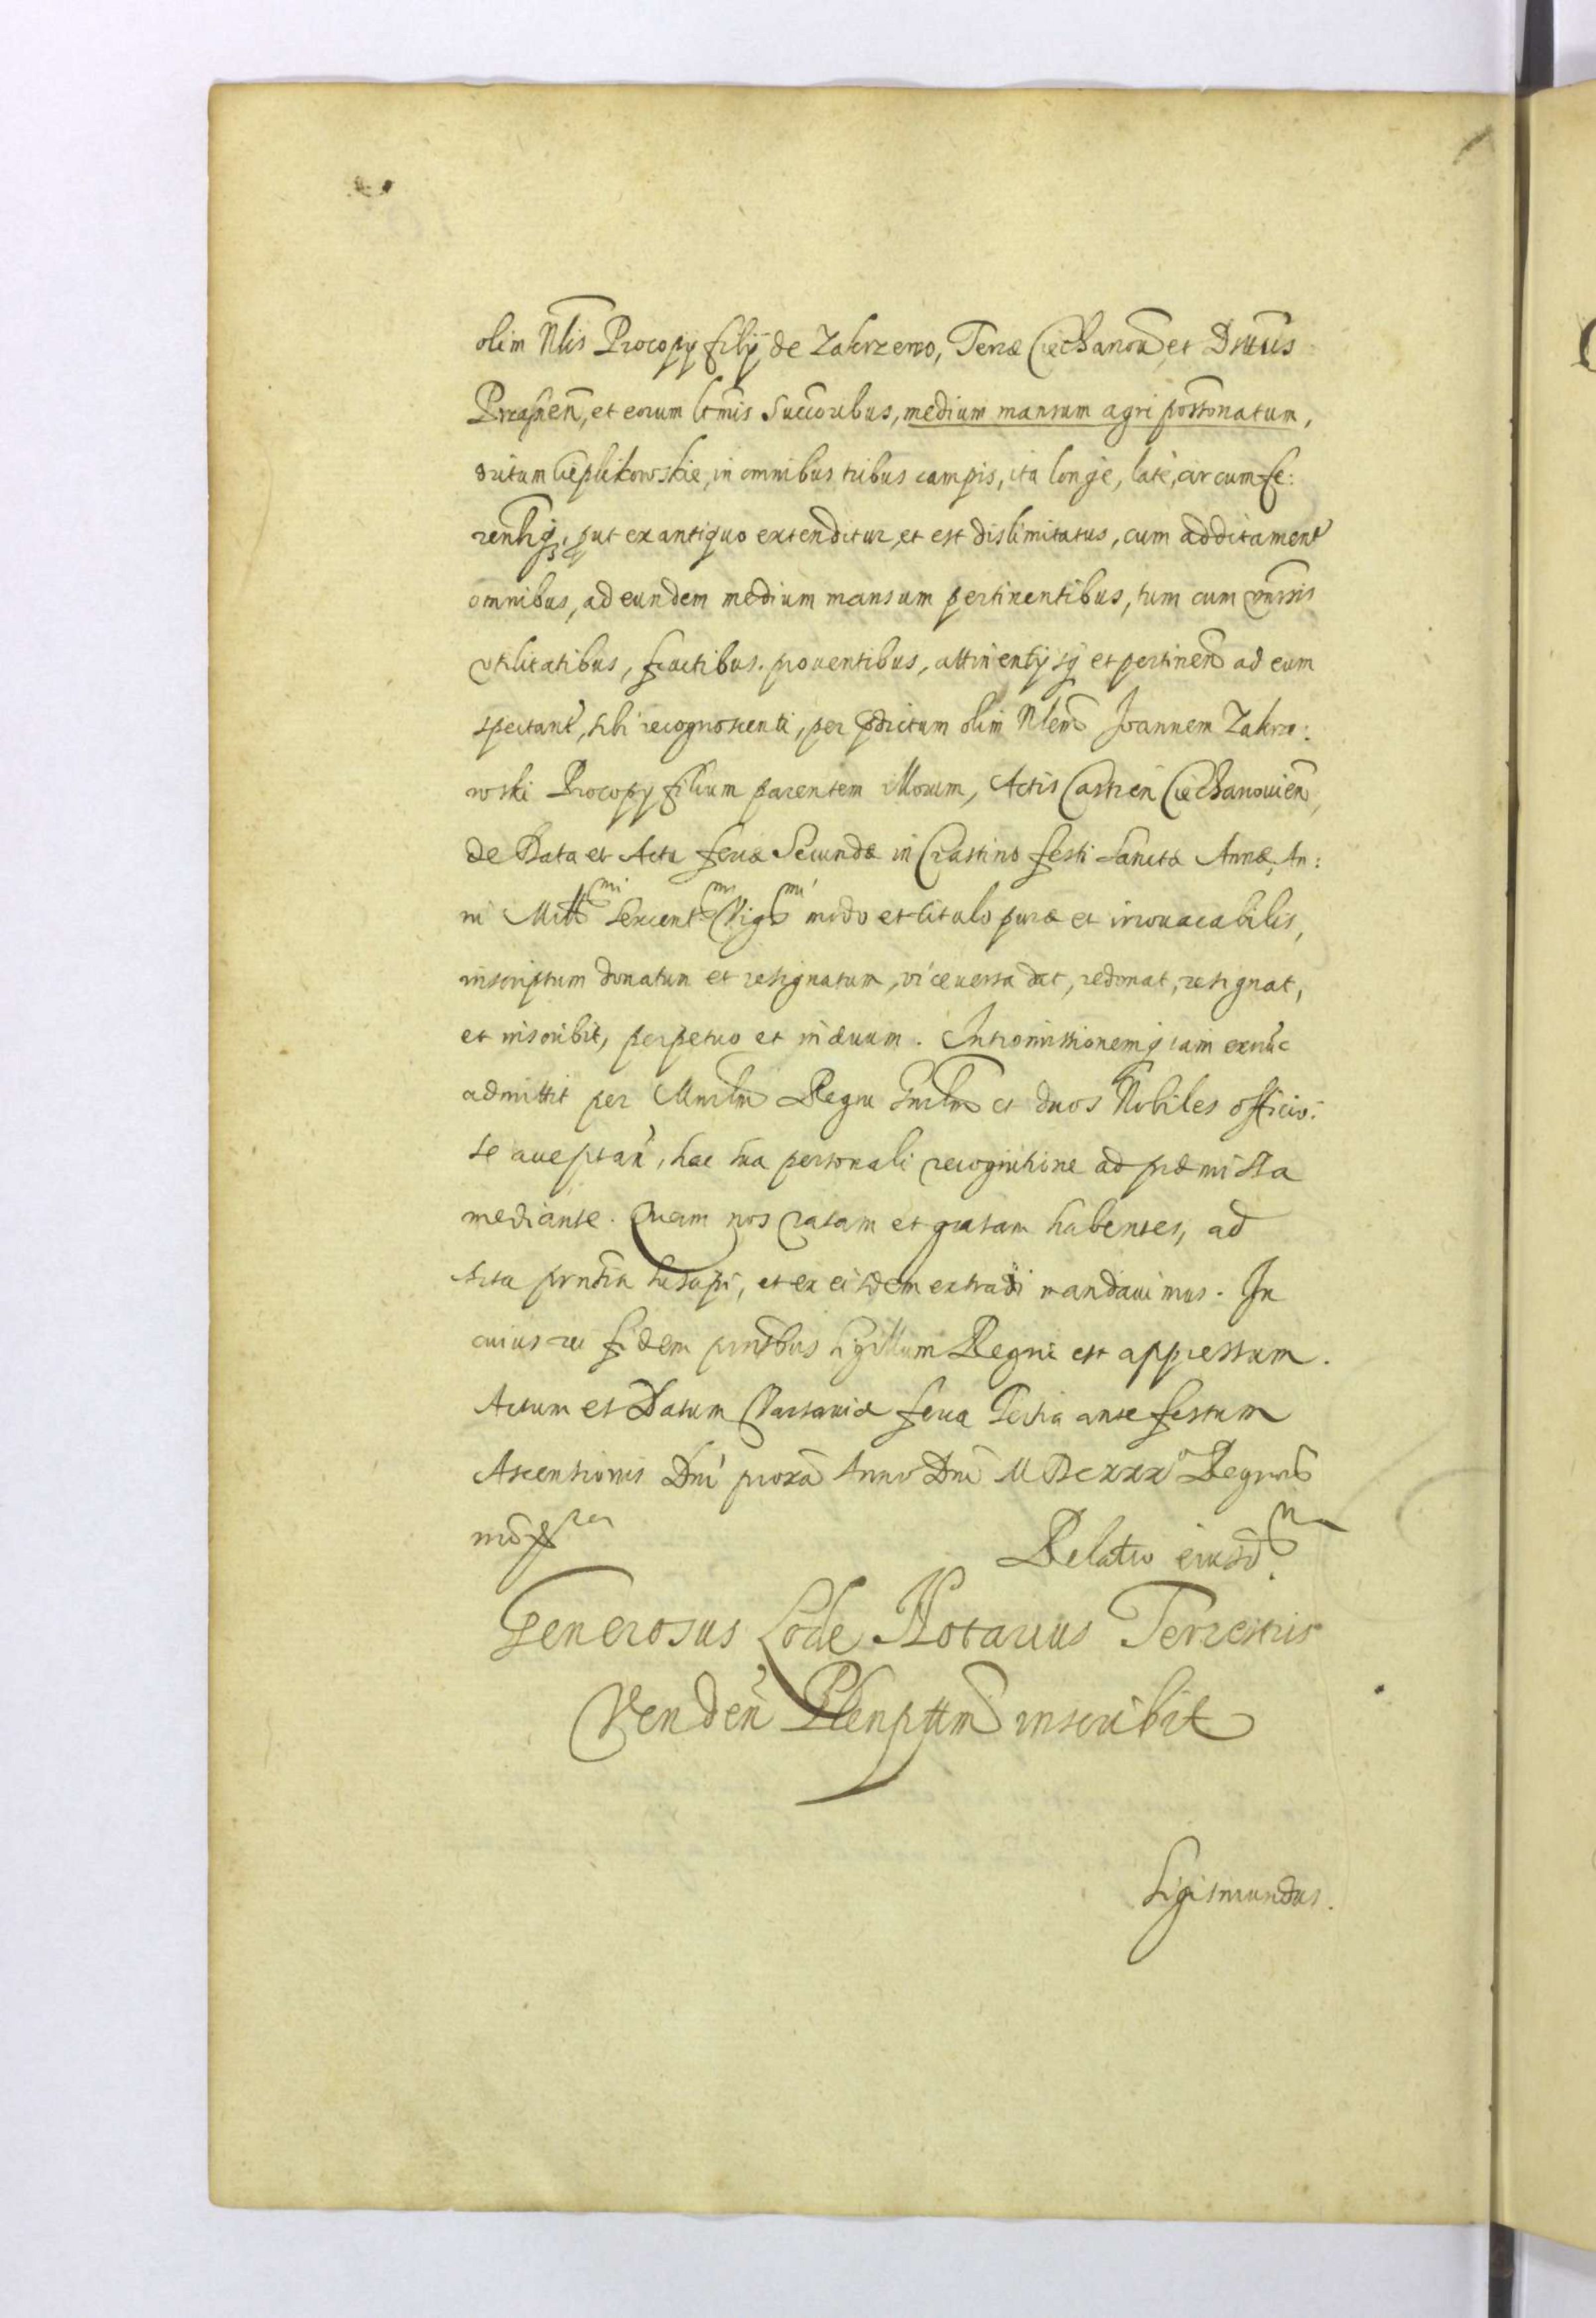 olim Nlis Procopy filÿ de Zakrzewo, Terræ Ciechanou̅, et Dnu̅s
Przasnen̅, et eorum ltmis Succoribus, medium mansum agri possonatum,
dictum Cieplikowskie, in omnibus tribus campis, ita longe, late, circumfe:
rentiq₃, put ex antiquo extenditur, et est dislimitatus, cum additament
omnibus, ad eundem medium mansum pertinentibus, tum cum vnirsis
vtilitatibus, fructibus. prouentibus, attinentÿsq et pertinen̅ ad eum
spectant, sibi recognoscenti, per pdictum olim Nlem Joannem Zakrze:
wski Procopy filium parentem illorum, Actis Castren̅ Ciechanouien̅,
de Data et Actu feriæ Secundæ in Crastino festi Sanctæ Annæ, An:
ni Mill^mi Sexcent^mi Vig^mi modo et titulo puræ et irreuacabilis,
inscriptum donatum et resignatum, viceuersa dat, redonat, resignat,
et inscribit, perpetuo et in æuum. Intromissionemq iam exnu̅c
admittit per Mnrlm Regni Gnrlm et duos Nobiles officio:
se acceptan̅, hac sua personali recognitione ad præmissa
mediante. Quam nos ratam et gratam habentes, ad
Acta prntia suscipi, et ex eisdem extradi mandauimus. In
cuius rei fidem prntibus sigillum Regni est appressum.
Actum et Datum Varsauiæ feria Tertia ante festum
Ascensionis Dni̅ proxa̅ Anno Dni̅ MDCXXX° Regnor̅
nr̅or̅
Relatio eiusd^m
Generosus Lode Notarius Terrestris
Venden̅ Plenpttm inscribit
Sigismundus.